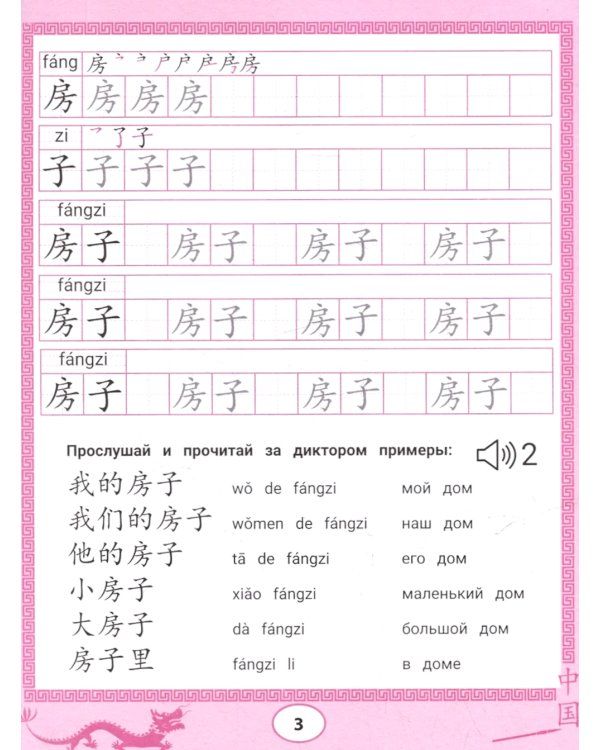 fáng 房 丶 房房
房 房 房 房
zi 了子
子 子 子 子
fángzi
房子 房子 房子 房子
fángzi
房子 房子 房子 房子
fángzi
房子 房子 房子 房子
Прослушай и прочитай за диктором примеры: 2
我的房子 wǒ de fángzi мой дом
我们的房子 wǒmen de fángzi наш дом
他的房子 tā de fángzi его дом
小房子 xiǎo fángzi маленький дом
大房子 dà fángzi большой дом
房子里 fángzi li в доме
中国
3